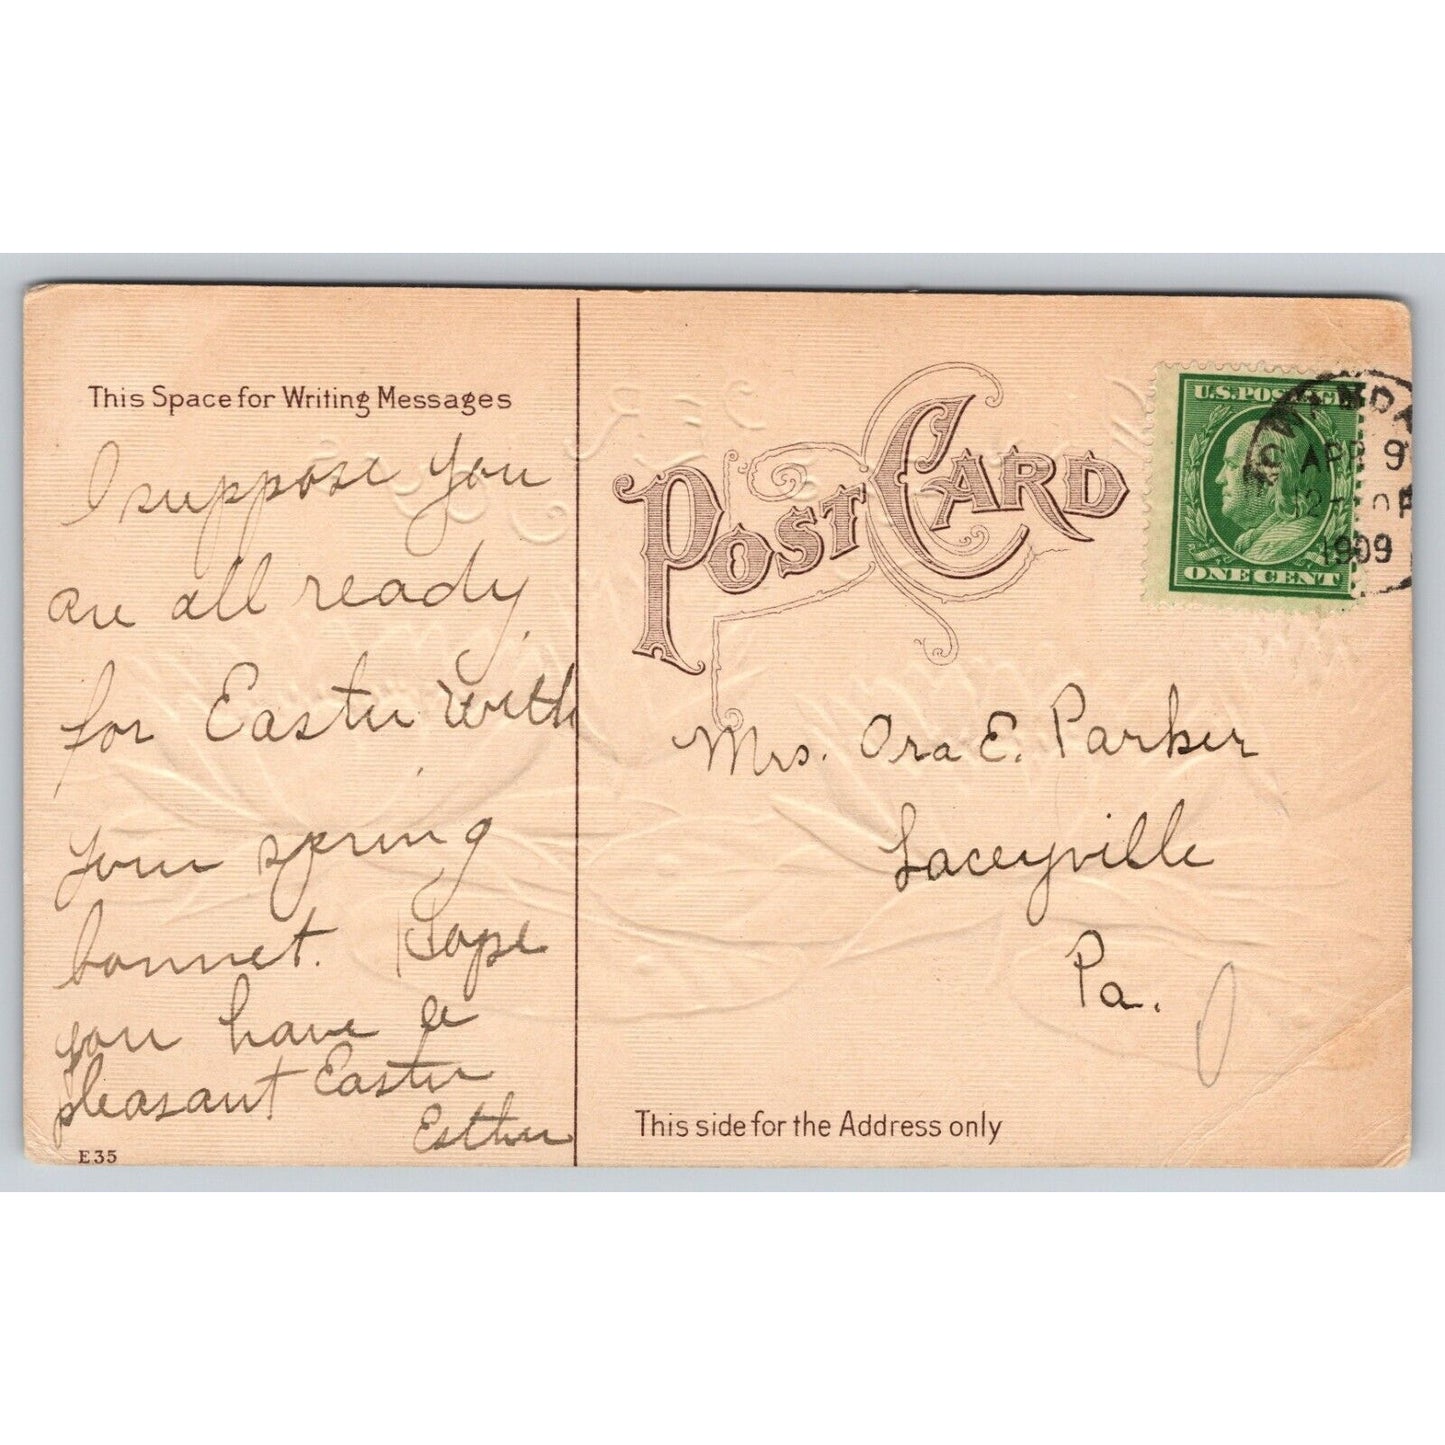 This Space for Writing Messages
I suppose you
are all ready
for Easter with
your spring
bonnet. Hope
you have a
pleasant Easter
Esther
E35
POST CARD
U.S. POSTAGE
ONE CENT
TOWANDA
APR 9
1909
Mrs. Ora E. Parker
Laceyville
Pa.
This side for the Address only